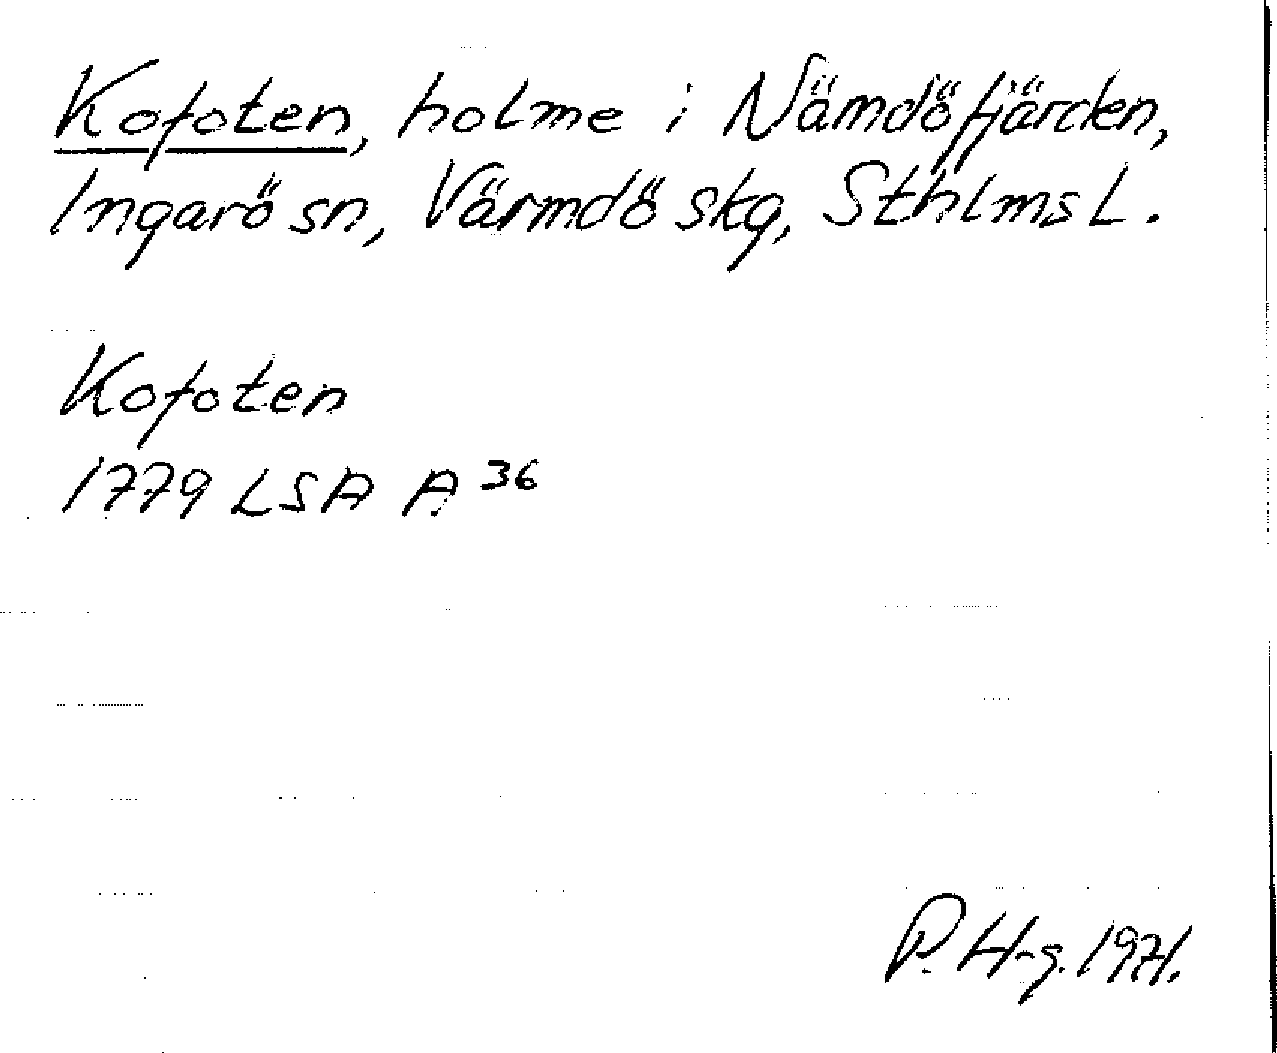 Kofoten, holme i Nämdöfjärden,
Ingarö sn, Värmdö skg, Sthlms L.
Kofoten
1779 LSA A 36
P. H-g. 1971.